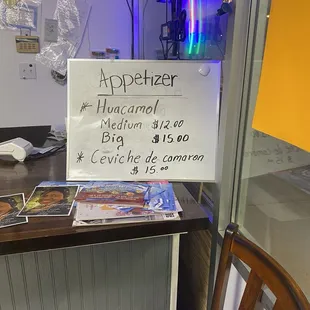 Appetizer
* Huacamol
Medium $12.00
Big $15.00
* Ceviche de camaron
$15.00